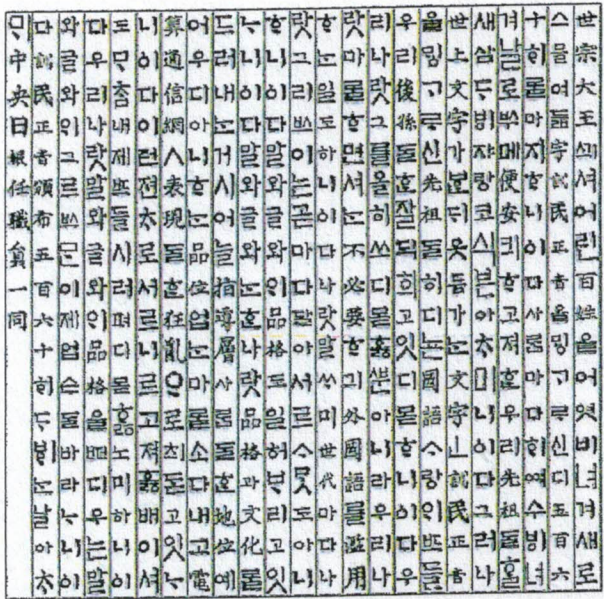 世宗大王ᄭᅴ셔어린百姓을어엿비녀겨새로
스믈여듧字訓民正音을ᄆᆡᆼᄀᆞᄅᆞ신디五百六
十ᄒᆡᄅᆞᆯ마지ᄒᆞ니이다사ᄅᆞᆷ마다ᄒᆡ여수ᄫᅵ녀
겨날로ᄡᅮ메便安킈ᄒᆞ고져ᄒᆞᆫ우리先祖ᄃᆞᆯᄒᆞᆯ
새삼ᄃᆞᄫᅵ쟈랑코식븐아ᄎᆞᄆᆡ니이다그러나
世上文字가ᄫᆞᆫᄃᆡ옷듬가ᄂᆞᆫ文字ㅣ訓民正音
을ᄆᆡᆼᄀᆞᄅᆞ신先祖ᄃᆞᆯ히디ᄂᆞᆫ國語ᄉᆞ랑읫ᄠᅳ들
우리後孫ᄃᆞᆯᄒᆞᆫ잘딕희고잇디몯ᄒᆞ니이다우
리나랏그를올히쓰디몯ᄒᆞᇙᄲᅮᆫ아니라우리나
랏마ᄅᆞᆯᄒᆞ면셔ᄂᆞᆫ不必要ᄒᆞᆫ긔外國語를濫用
ᄒᆞᄂᆞᆫ일도하니이다나랏말ᄊᆞ미世代마다나
랏그리ᄡᅳ이는곧마다달아서르ᄉᆞᄆᆞᆺ도아니
ᄒᆞ니이다말와글와읫品格도일허ᄇᆞ리고잇
ᄂᆞ니이다말와글와ᄂᆞᆫᄒᆞᆫ나랏品格과文化ᄅᆞᆯ
드러내ᄂᆞᆫ거시어늘指導層사ᄅᆞᆷᄃᆞᆯᄒᆞᆫ地位예
어우디아니ᄒᆞᆫ品位업ᄂᆞᆫ마ᄅᆞᆯ소다내고電
算通信網ㅅ表現ᄃᆞᆯᄒᆞᆫ狂亂ᄋᆞ로츠ᄃᆞᆮ고잇ᄂᆞ
니이다이런젼ᄎᆞ로서르니르고져ᄒᆞᇙ배이셔
도ᄆᆞᄎᆞᆷ내제ᄠᅳ들시러펴디몯ᄒᆞᇙ노미하니이
다우리나랏말와글와읫品格을ᄠᅥ디우는말
와글와읫그르ᄡᅮᆫ이제업수ᄃᆞᆯ바라ᄂᆞ니이
다訓民正音頒布五百六十ᄒᆡᄃᆞᄫᅵᄂᆞᆫ날아ᄎᆞ
ᄆᆡ中央日報任職員一同